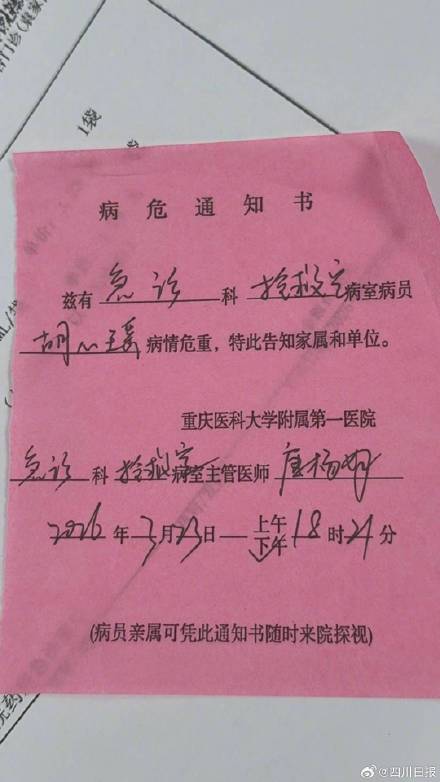 1袋
病危通知书
兹有 急诊 科 抢救室 病室病员
胡心瑶 病情危重，特此告知家属和单位。
重庆医科大学附属第一医院
急诊 科 抢救室 病室主管医师 唐杨
2026 年 3月23日 — 上午 18 时 21 分
下午
(病员亲属可凭此通知书随时来院探视)
@四川日报